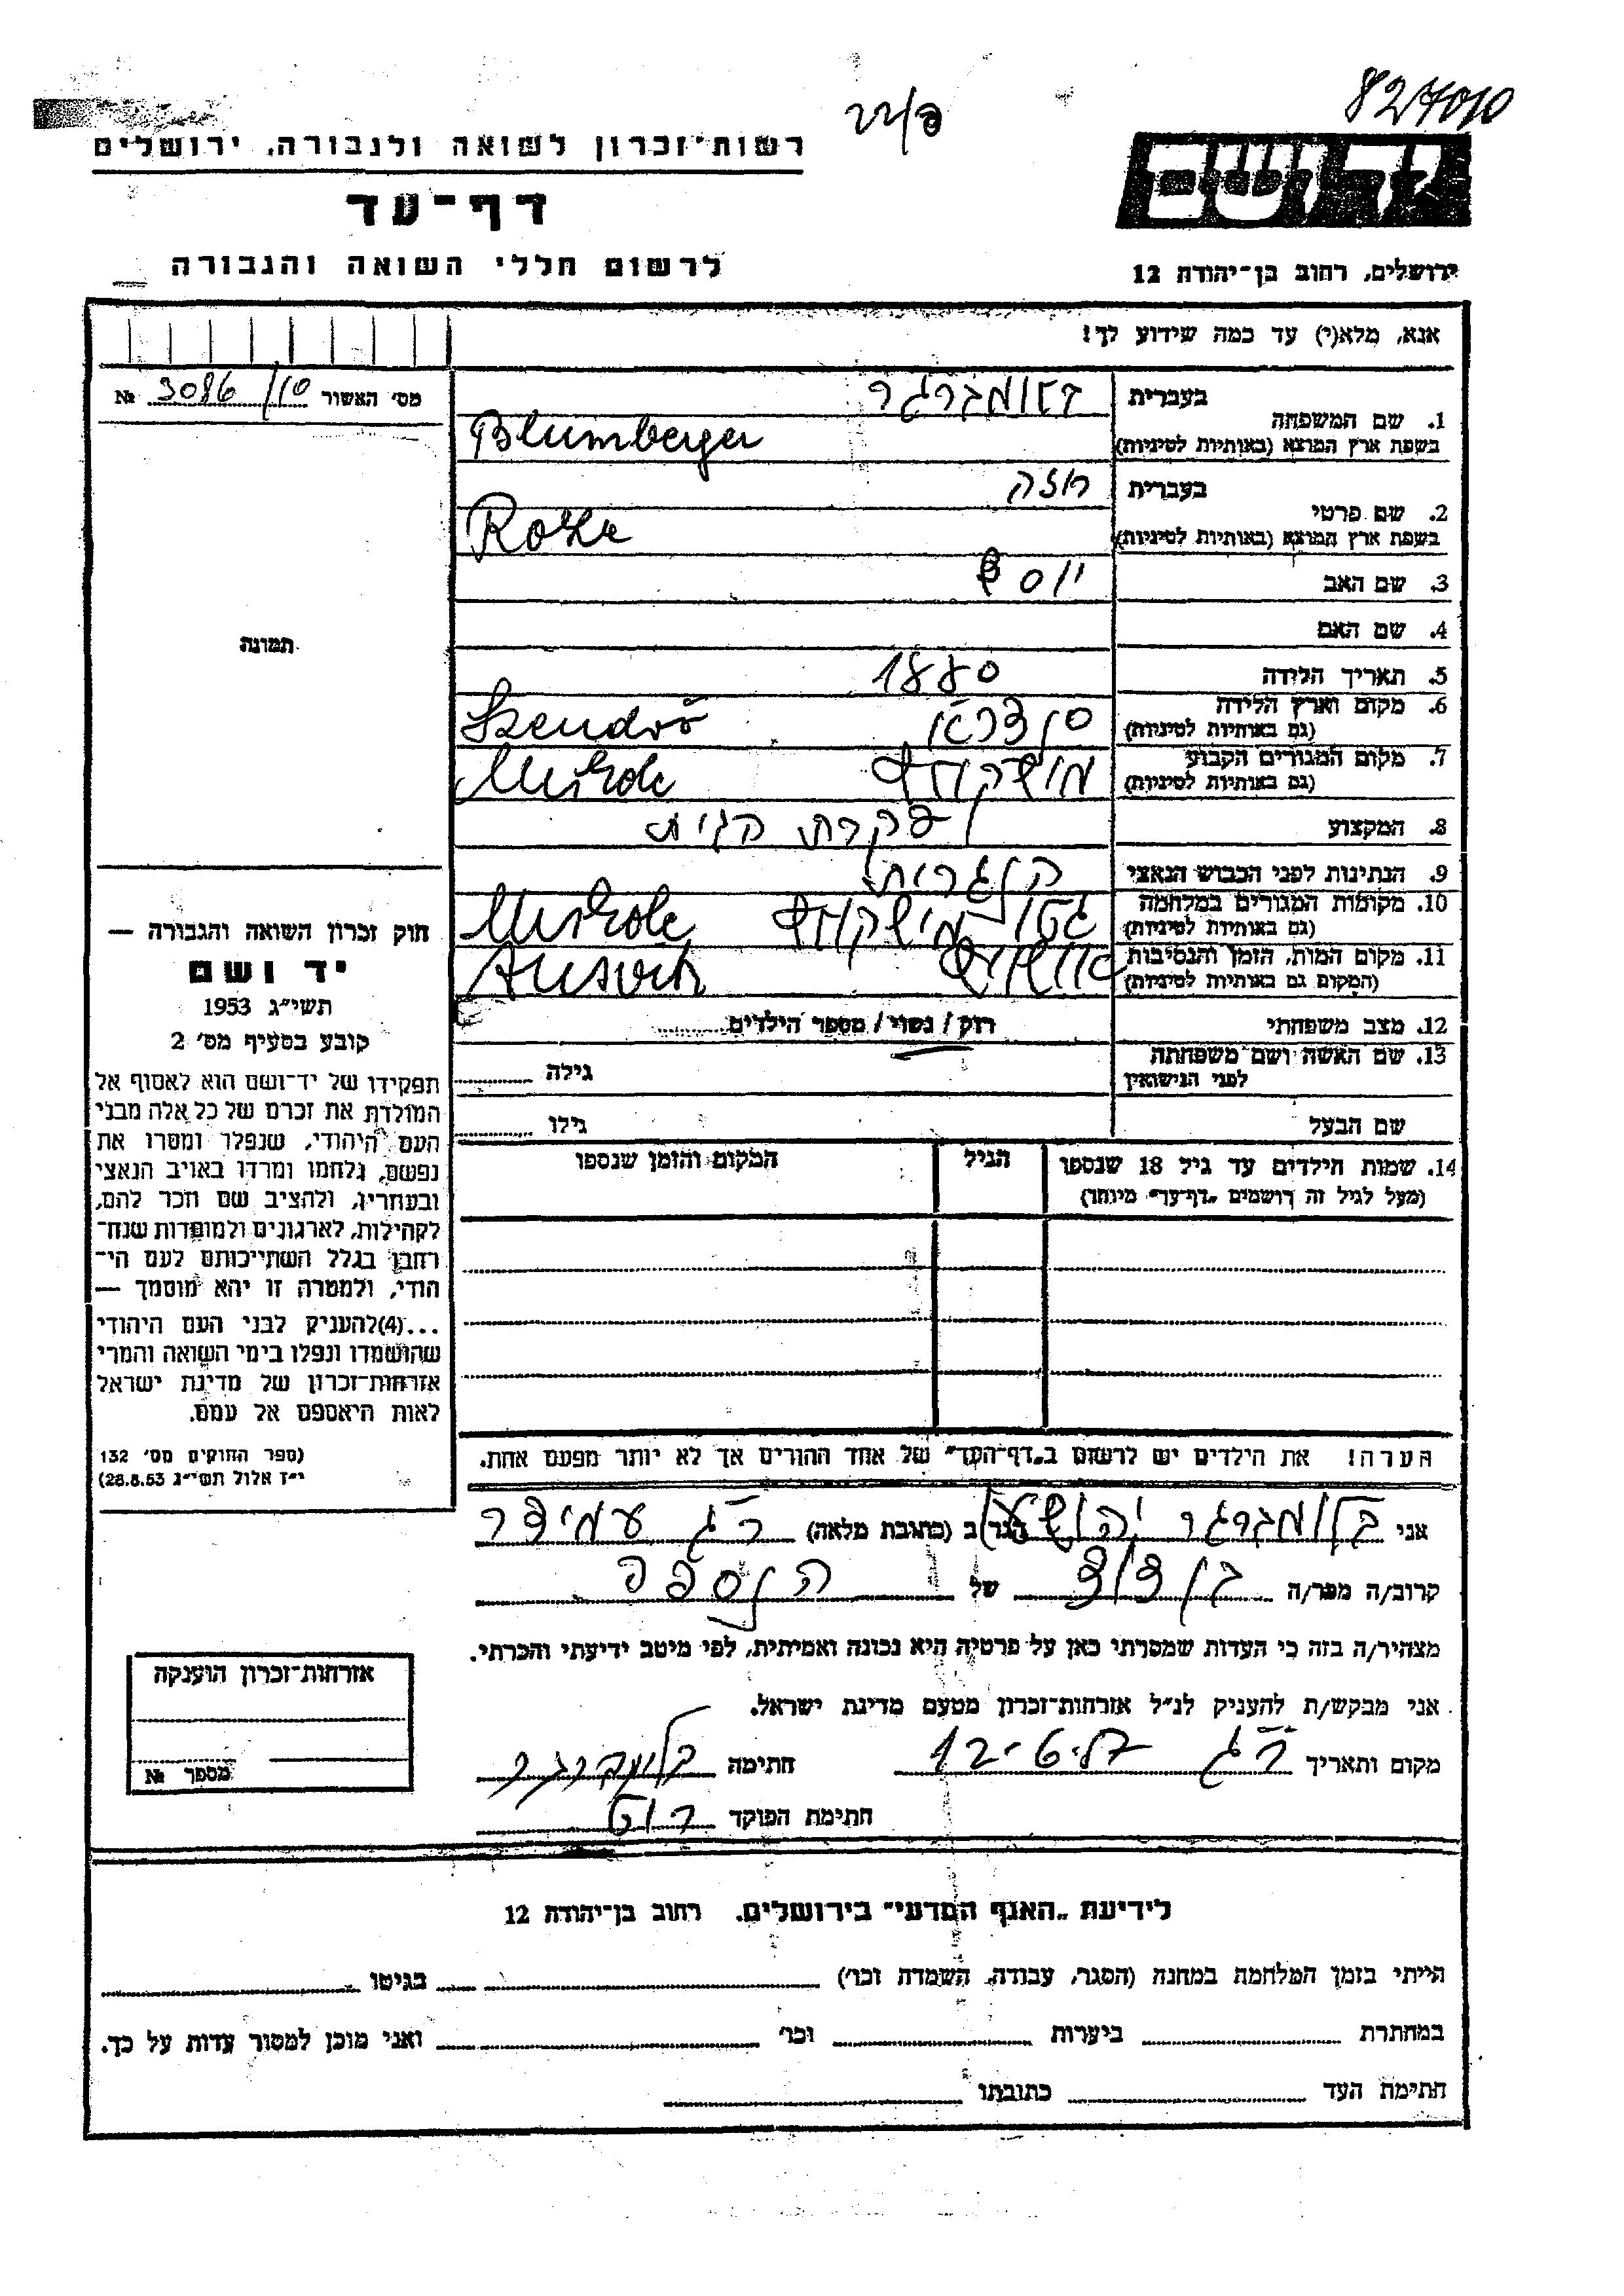 827010
פ/22
יד ושם
רשות־זכרון לשואה ולגבורה, ירושלים
דף־עד
לרשום חללי השואה והגבורה
ירושלים, רחוב בן־יהודה 12
אנא, מלא(י) עד כמה שידוע לך!
מס׳ האשור 3086/10 №
בעברית בלומברגר
1. שם המשפחה
בשפת ארץ המוצא (באותיות לטיניות) Blumberger
בעברית רוזה
2. שם פרטי
בשפת ארץ המוצא (באותיות לטיניות) Roza
3. שם האב יוסף
4. שם האם
תמונה
5. תאריך הלידה 1880
6. מקום וארץ הלידה סנדראו Szendrő
(גם באותיות לטיניות)
7. מקום המגורים הקבוע מישקולץ Miskolc
(גם באותיות לטיניות)
8. המקצוע עקרת הבית
9. הנתינות לפני הכבוש הנאצי הונגרית
10. מקומות המגורים במלחמה גטו מישקולץ Miskolc
(גם באותיות לטיניות)
11. מקום המות, הזמן והנסיבות אושויץ Ausvitz
(המקום גם באותיות לטיניות)
12. מצב משפחתי רוק/נשוי/מספר הילדים
13. שם האשה ושם משפחתה גילה
לפני הנישואין
שם הבעל גילו
14. שמות הילדים עד גיל 18 שנספו הגיל המקום והזמן שנספו
(מעל לגיל זה רושמים „דף־עד״ מיוחד)
חוק זכרון השואה והגבורה —
יד ושם
תשי״ג 1953
קובע בסעיף מס׳ 2
תפקידו של יד־ושם הוא לאסוף אל
המולדת את זכרם של כל אלה מבני
העם היהודי, שנפלו ומסרו את
נפשם, נלחמו ומרדו באויב הנאצי
ובעוזריו, ולהציב שם וזכר להם,
לקהילות, לארגונים ולמוסדות שנח־
רחבו בגלל השתייכותם לעם הי־
הודי, ולמטרה זו יהא מוסמך —
...(4)להעניק לבני העם היהודי
שהושמדו ונפלו בימי השואה והמרי
אזרחות־זכרון של מדינת ישראל
לאות היאספם אל עמם.
(ספר החוקים מס׳ 132
י״ז אלול תשי״ג 28.8.53)
הערה! את הילדים יש לרשום ב„דף־העד״ של אחד ההורים אך לא יותר מפעם אחת.
אני בלומברגר יהושע הגר ב (כתובת מלאה) ר״ג עמידר
קרוב/ה מכר/ה בן דוד של הנספה
מצהיר/ה בזה כי העדות שמסרתי כאן על פרטיה היא נכונה ואמיתית, לפי מיטב ידיעתי והכרתי.
אני מבקש/ת להעניק לנ״ל אזרחות־זכרון מטעם מדינת ישראל.
מקום ותאריך ר״ג חתימה בלומברגר
חתימת הפוקד
אזרחות־זכרון הוענקה
מספר №
לידיעת „האגף המדעי״ בירושלים. רחוב בן־יהודה 12
הייתי בזמן המלחמה במחנה (הסגר, עבודה, השמדה וכו׳) בגיטו
במחתרת ביערות וכו׳ ואני מוכן למסור עדות על כך.
חתימת העד כתובתו